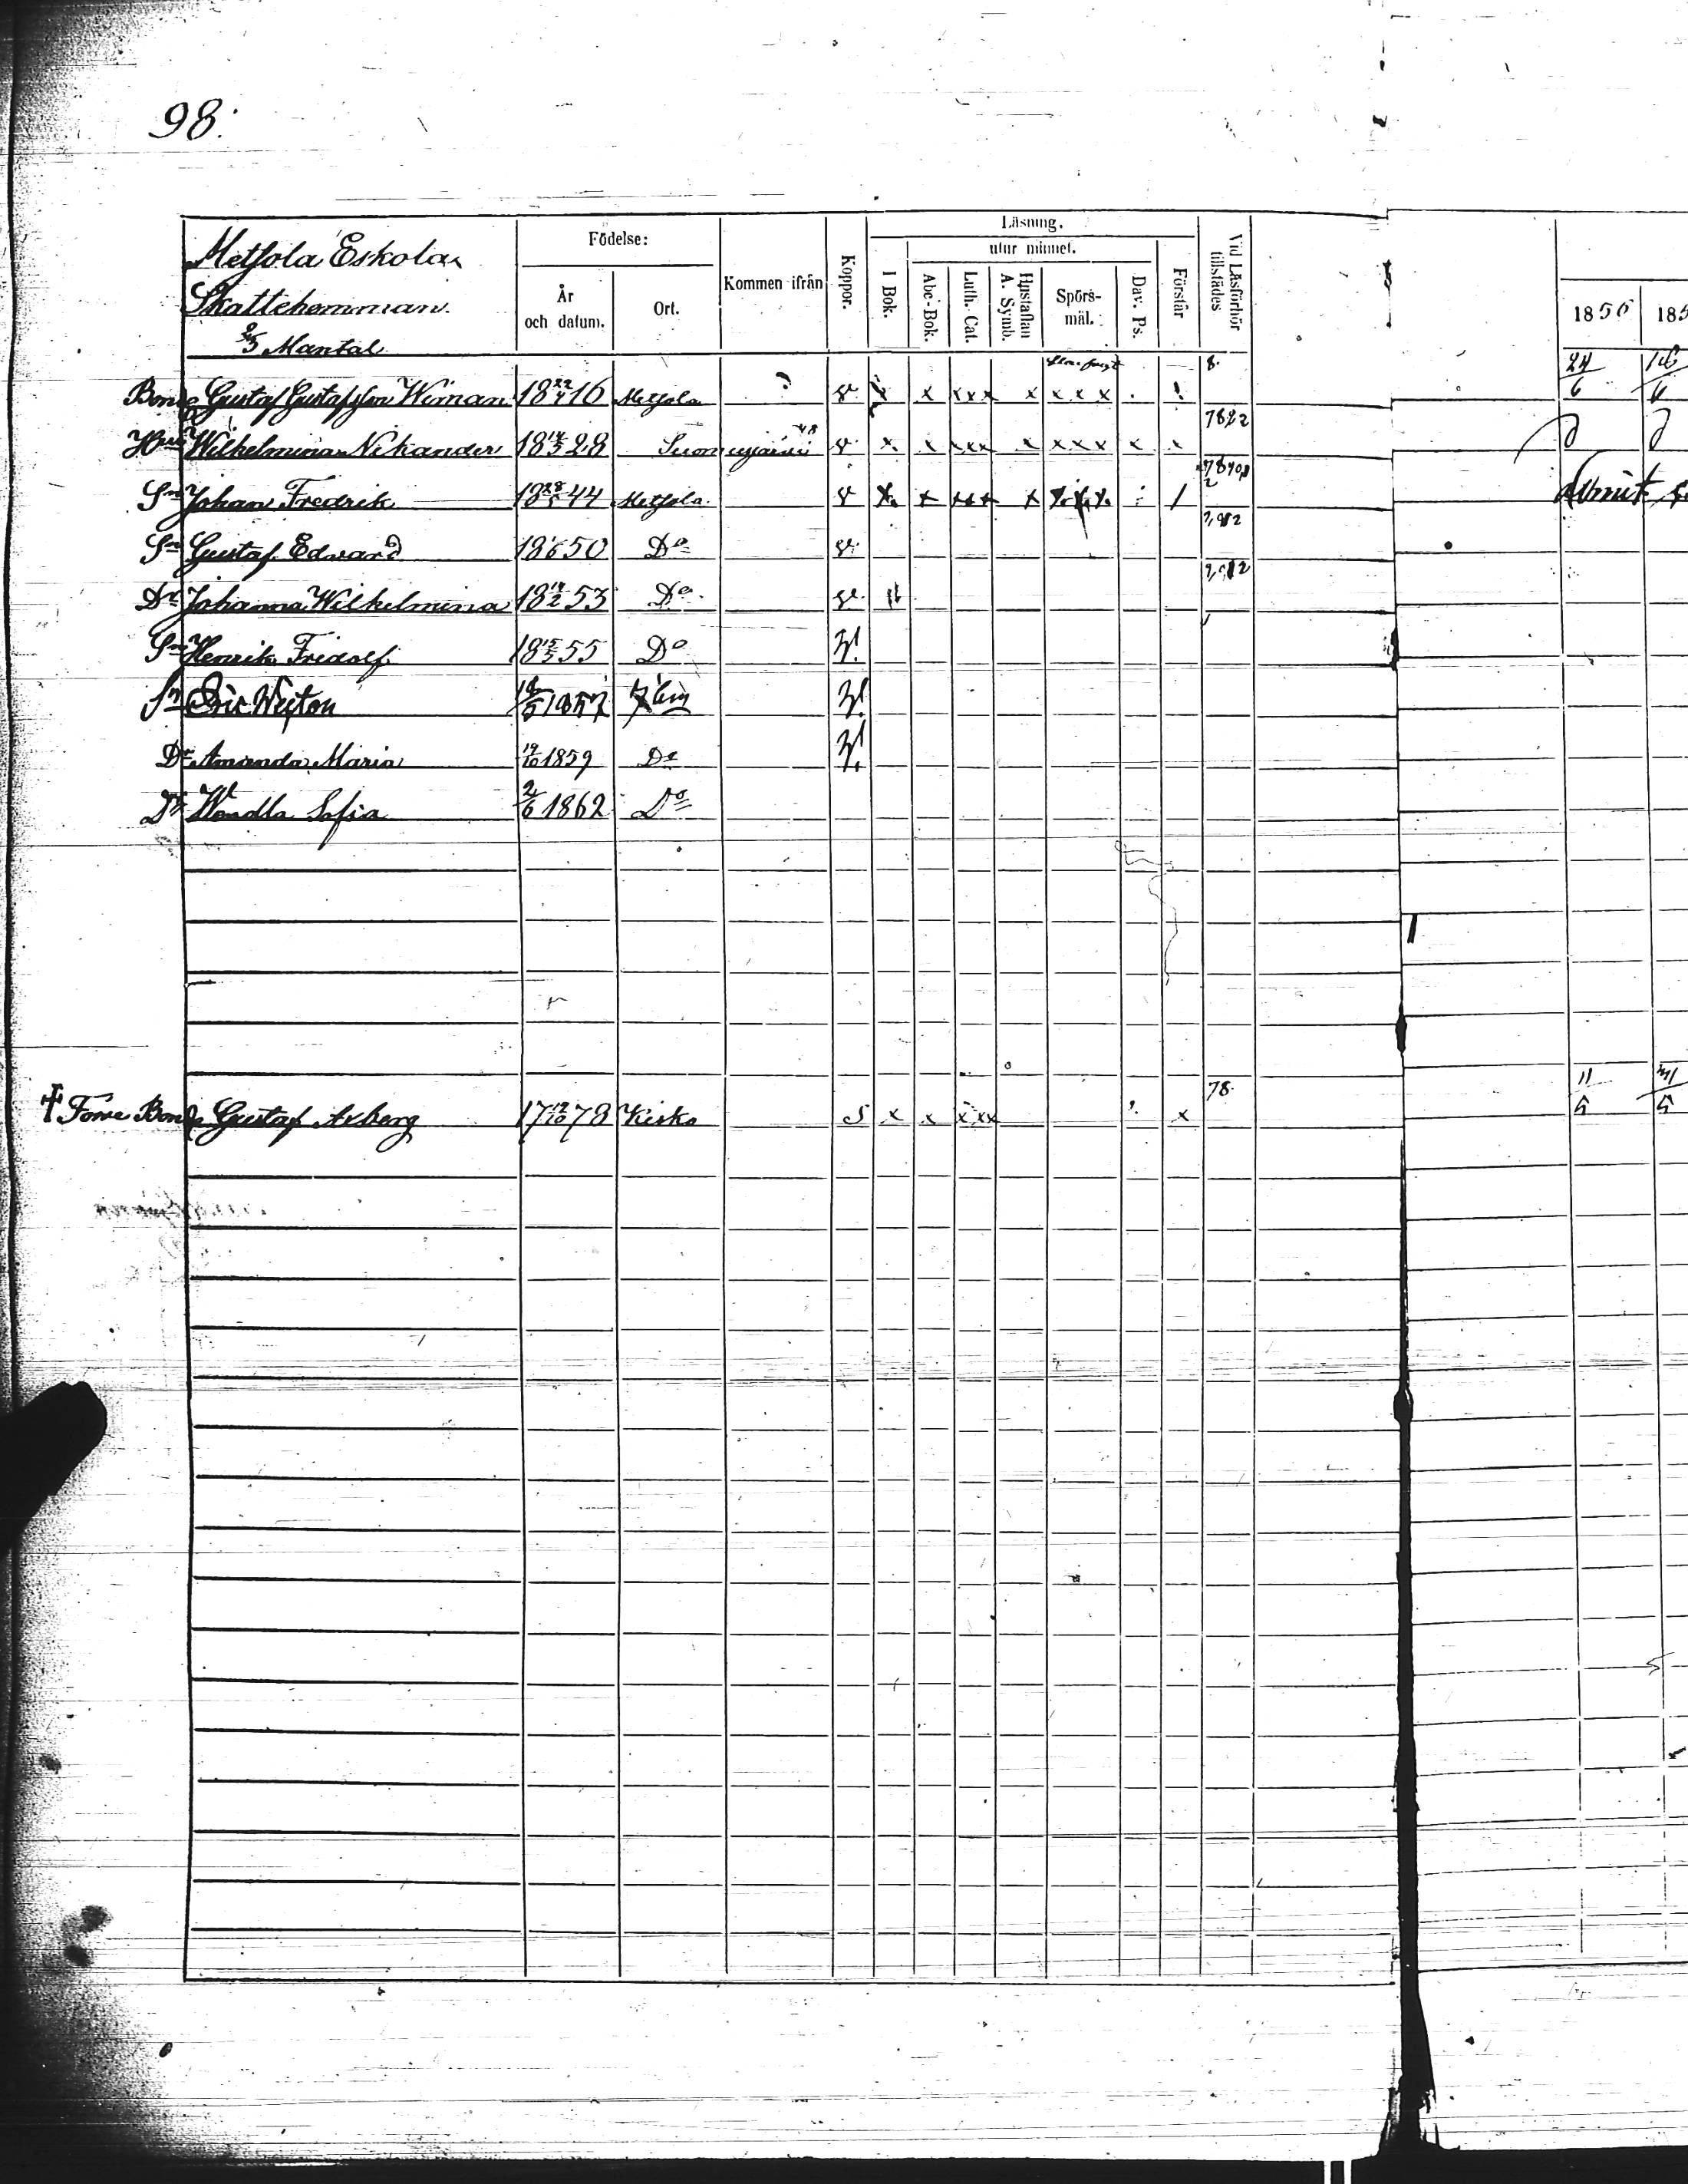 98.
Metsola Eskola
Skattehemman.
2/3 Mantal
Födelse:
År och datum.
Ort.
Kommen ifrån
Koppor.
Läsning.
utur minnet.
I Bok.
Abc-Bok.
Luth. Cat.
Hustaflan A. Symb.
Spörsmål.
Dav. Ps.
Förstår
Vid Läsförhör tillstädes
1856 185
Bonde Gustaf Gustafsson Wiman 18 22/4 16 Metsola v x x xxx x x x x . 8. 24/6 16/6
Hu Wilhelmina Nikander 18 28 48 v x x xxx x xxx x x 7882
Sn Johan Fredrik 18 28/5 44 Metsola v x x xxx x x x x /
Sn Gustaf Edvard 18 50 Do v
Dr Johanna Wilhelmina 18 53 Do v
Sn Henrik Fridolf 18 15/5 55 Do
Sn Eric 1857
Dr Amanda Maria 19/10 1859 Do
Dr Wendla Sofia 2/6 1862 Do
† Forre Bonde Gustaf Arberg 17 78 Kisko S x x xxx x 78. 11/5